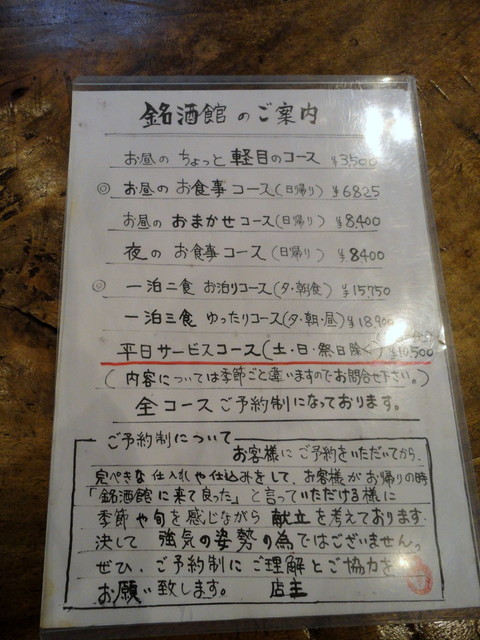 銘酒館のご案内
お昼の ちょっと 軽目のコース ¥3500
◎ お昼の お食事コース(日帰り) ¥6825
お昼の おまかせコース(日帰り) ¥8400
夜の お食事コース(日帰り) ¥8400
◎ 一泊二食 お泊りコース(夕・朝食) ¥15750
一泊三食 ゆったりコース(夕・朝・昼) ¥18,900
平日サービスコース(土・日・祭日除く) ¥10,500
(内容については季節ごと違いますのでお問合せ下さい。)
全コースご予約制になっております。
ご予約制について
お客様にご予約をいただいてから、
完ぺきな仕入れや仕込みをして、お客様がお帰りの時
「銘酒館に来て良った」と言っていただける様に
季節や旬を感じながら 献立を考えております。
決して 強気の姿勢の為ではございません。
ぜひ、ご予約制にご理解とご協力を
お願い致します。 店主